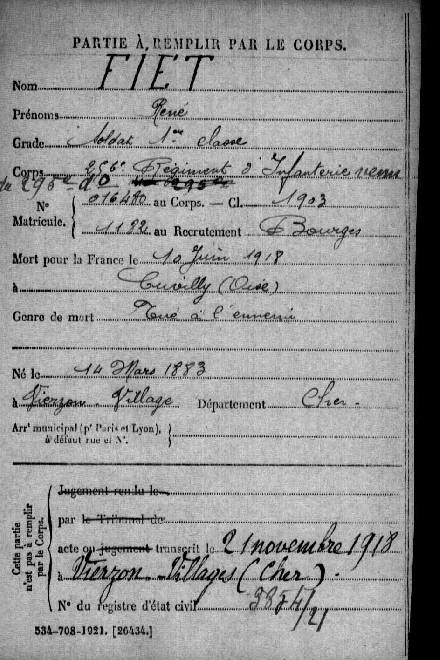 PARTIE À REMPLIR PAR LE CORPS.
Nom FIET
Prénoms René
Grade Soldat 1re classe
Corps 256e Régiment d'Infanterie venu
du 295e d°
N° 016480 au Corps. — Cl. 1903
Matricule. 1122 au Recrutement Bourges
Mort pour la France le 10 Juin 1918
à Cuvilly (Oise)
Genre de mort Tué à l'ennemi
Né le 14 Mars 1883
à Vierzon-Village Département Cher.
Arrt municipal (pr Paris et Lyon),
à défaut rue et N°.
Cette partie
n'est pas à remplir
par le Corps.
Jugement rendu le
par le Tribunal de
acte ou jugement transcrit le 21 novembre 1918
à Vierzon-Villages (Cher)
N° du registre d'état civil
534-708-1921. [26434.]